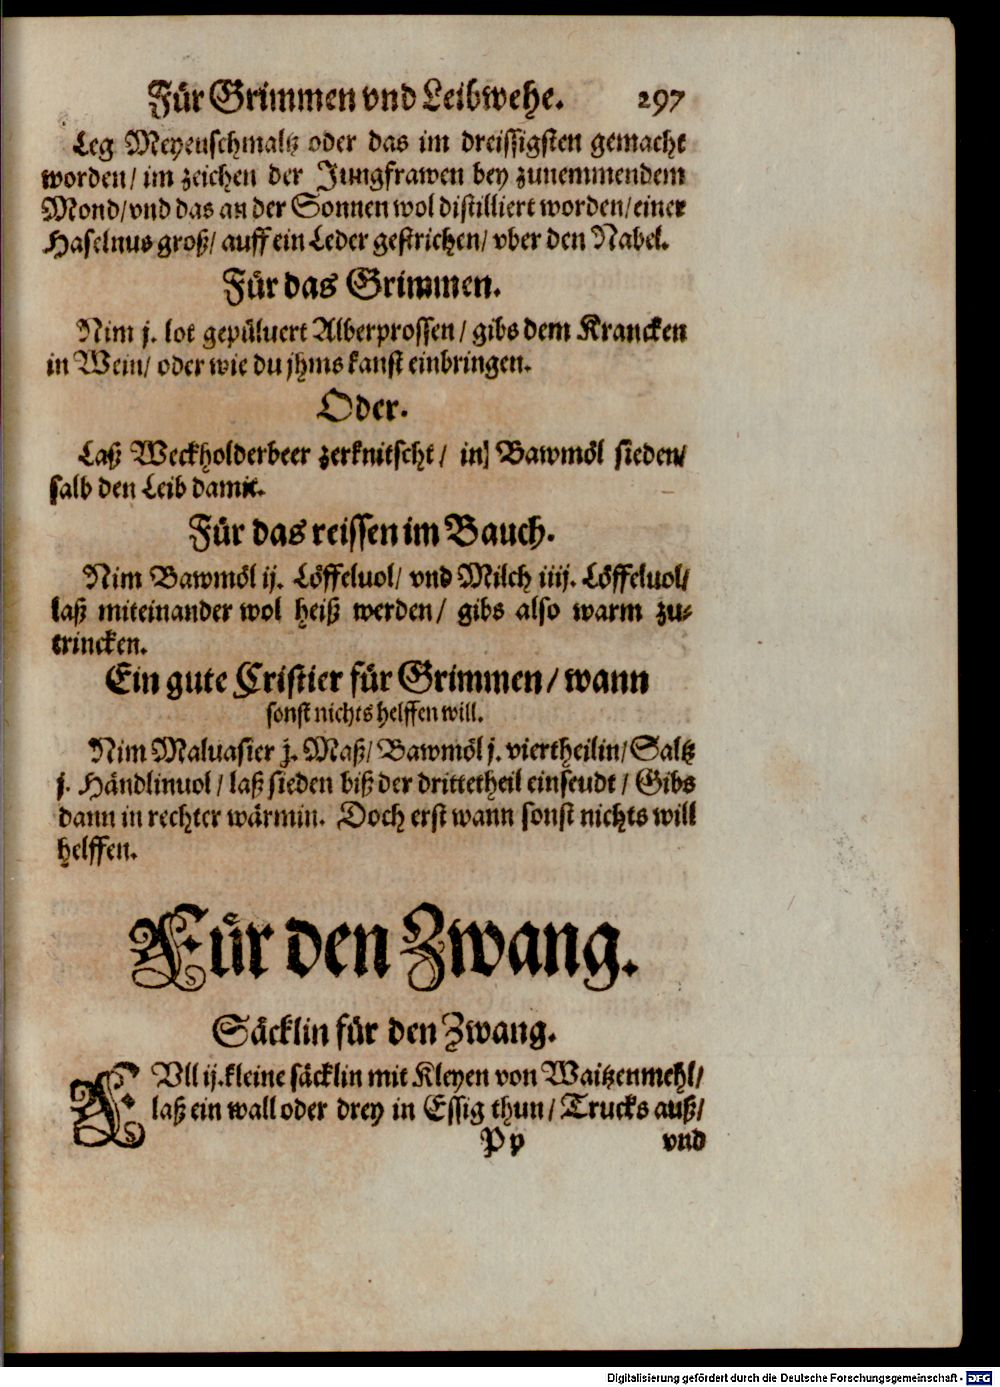 Für Grimmen vnd Leibwehe. 297
Leg Meyenschmaltz oder das im dreissigsten gemacht
worden/ im zeichen der Jungfrawen bey zunemmendem
Mond/vnd das an der Sonnen wol distilliert worden/ einer
Haselnus groß/ auff ein Leder gestrichen/ vber den Nabel.
Für das Grimmen.
Nim j. lot gepüluert Alberprossen/ gibs dem Krancken
in Wein/ oder wie du jhms kanst einbringen.
Oder.
Laß Weckholderbeer zerknitscht/ in] Bawmöl sieden/
salb den Leib damit.
Für das reissen im Bauch.
Nim Bawmöl ij. Löffeluol/ vnd Milch iiij. Löffeluol/
laß miteinander wol heiß werden/ gibs also warm zu-
trincken.
Ein gute Cristier für Grimmen/ wann
sonst nichts helffen will.
Nim Maluasier j. Maß/ Bawmöl j. viertheilin/ Saltz
j. Händlinuol/ laß sieden biß der drittetheil einseudt/ Gibs
dann in rechter wärmin. Doch erst wann sonst nichts will
helffen.
Für den Zwang.
Säcklin für den Zwang.
FVll ij. kleine säcklin mit Kleyen von Waitzenmehl/
laß ein wall oder drey in Essig thun/ Trucks auß/
Pp vnd
Digitalisierung gefördert durch die Deutsche Forschungsgemeinschaft - DFG